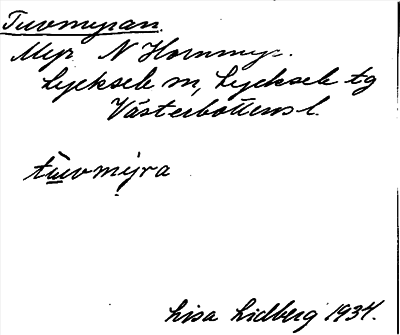 Tuvmyran.
Myr N Hornmyr.
Lycksele sn, Lycksele tg
Västerbottens l.
tùvmỳra
Lisa Lidberg 1934.